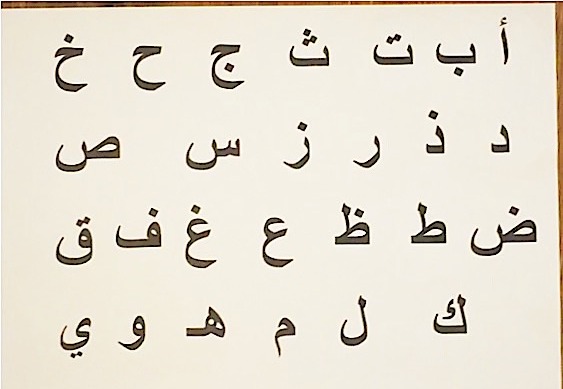 أ ب ت ث ج ح خ
د ذ ر ز س ص
ض ط ظ ع غ ف ق
ك ل م هـ و ي